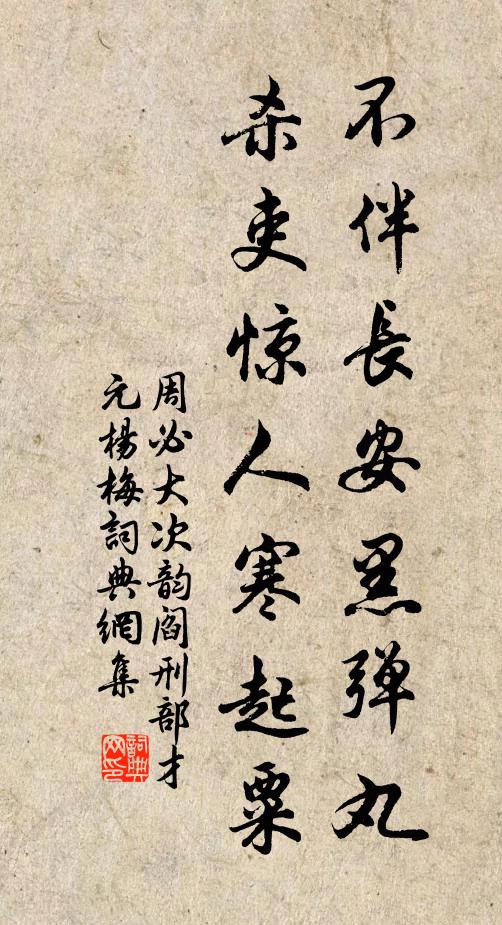 不伴長安黑弹丸
杀吏惊人寒起粟
周必大次韵阎刑部才
元楊梅詞典網集
詞典网印